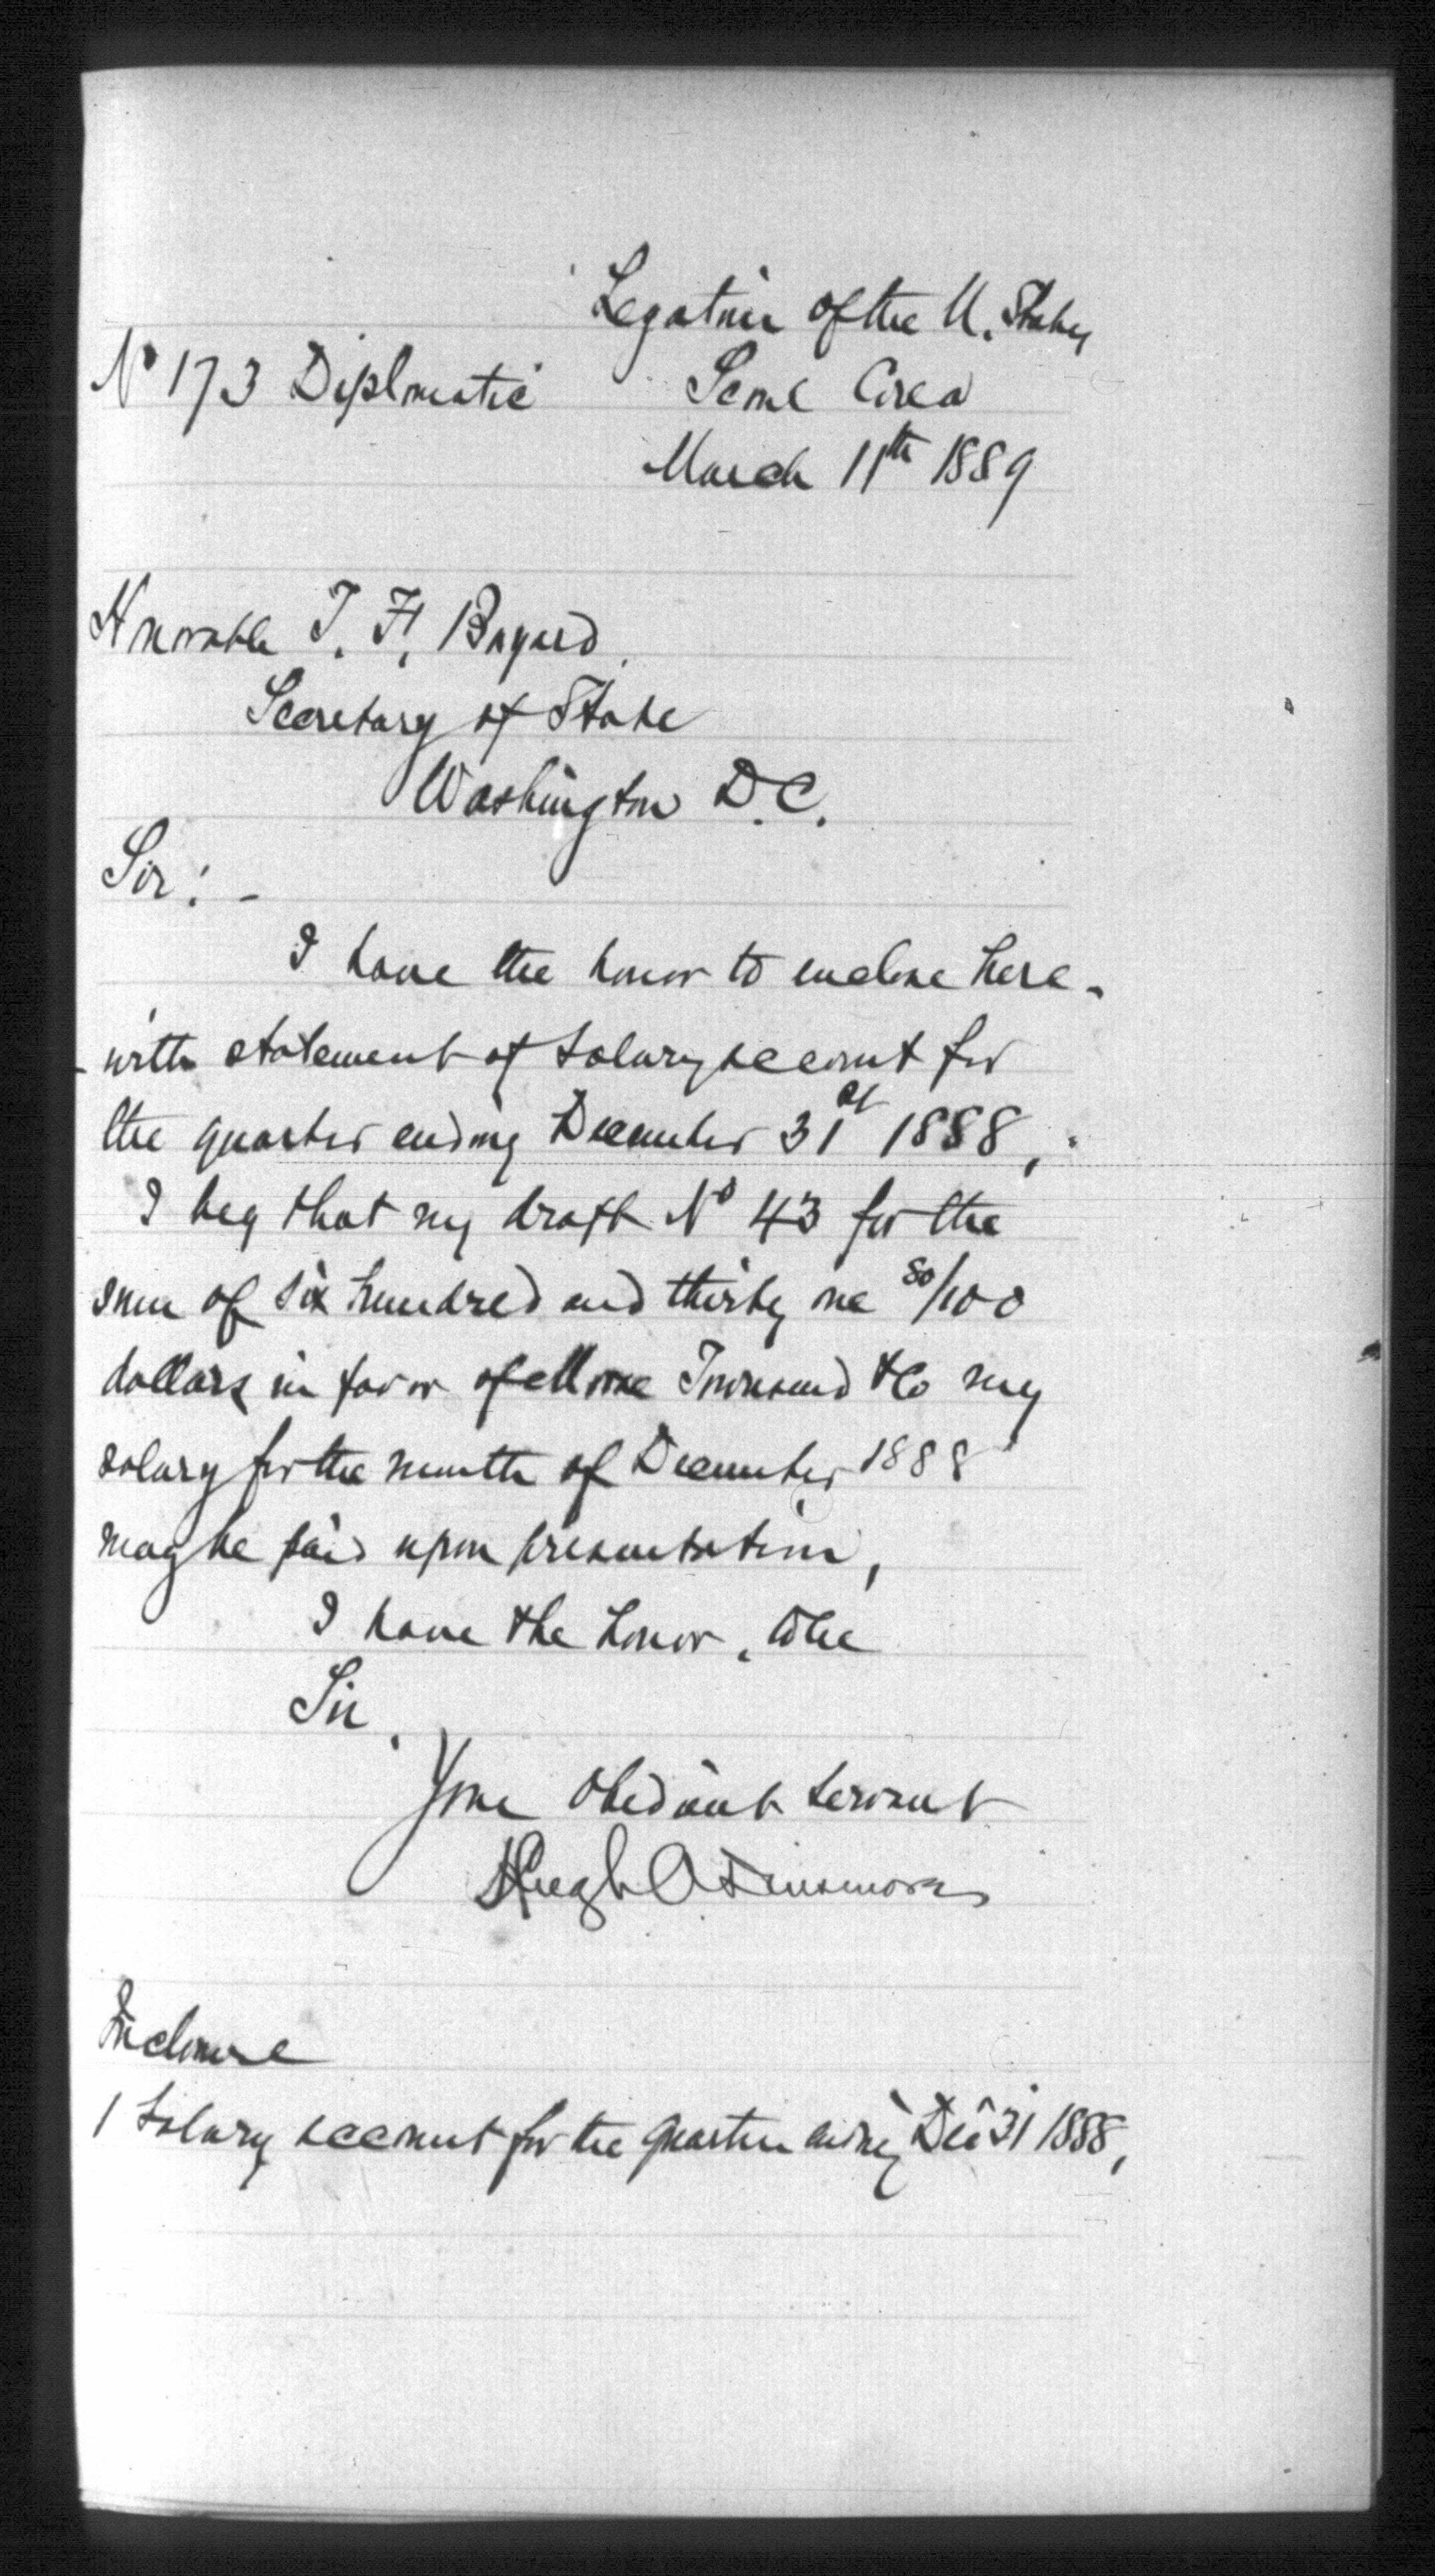 Legation of the U. States
Nº 173 Diplomatic Seoul Corea
March 11th 1889
Honorable T. F. Bayard.
Secretary of State
Washington D.C.
Sir: -
I have the honor to enclose here-
-with statement of salary account for
the quarter ending December 31st 1888,
I beg that my draft Nº 43 for the
sum of six hundred and thirty one 80/100
dollars in favor of Morse Townsend & Co my
salary for the month of December 1888
may be paid upon presentation,
I have the honor, to be
Sir,
Your Obedient Servant
Hugh A Dinsmore
Inclosure
1 Salary account for the quarter ending Dec 31 1888,